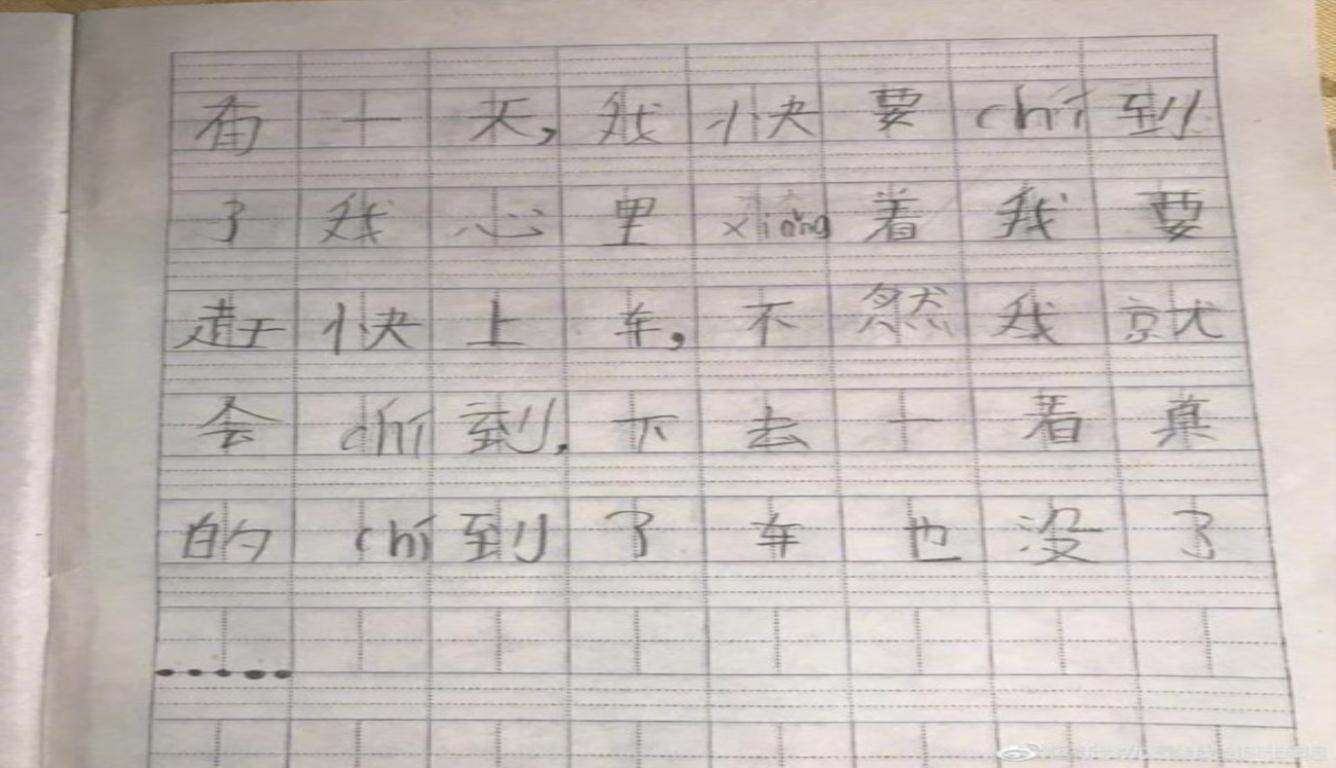 有一天，我快要chí到
了我心里xiǎng着我要
赶快上车，不然我就
会chí到，下去一看真
的chí到了车也没了
.....